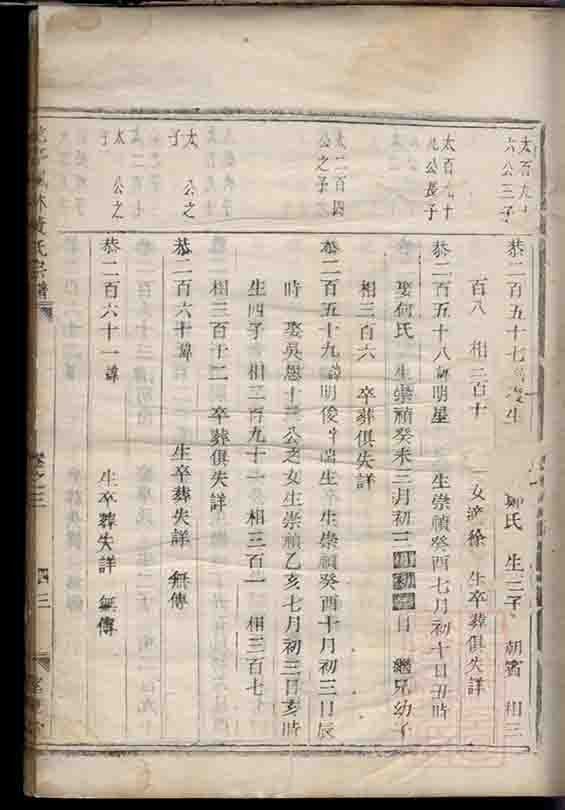 太百九十
六公三子
恭二百五十七 生 鄭氏 生三子 朝賓 相三
百八 相三百十 一女 徐 生卒葬俱失詳
太百九十
公長子
恭二百五十八諱明星 生崇禎癸酉七月初十日丑時
娶何氏 生崇禎癸未三月初三 日 繼兄幼子
相三百六 卒葬俱失詳
太二百
公之子
恭二百五十九諱明俊字瑞生 生崇禎癸酉十月初三日辰
時 娶吳恩十 公之女生崇禎乙亥七月初三日亥時
生四子 相三百九十一 相三百一 相三百七
相三百十二 卒葬俱失詳
太 公之
子
恭二百六十諱 生卒葬失詳 無傳
太 公之
子
恭二百六十一諱 生卒葬失詳 無傳
林黃氏宗譜
卷之三